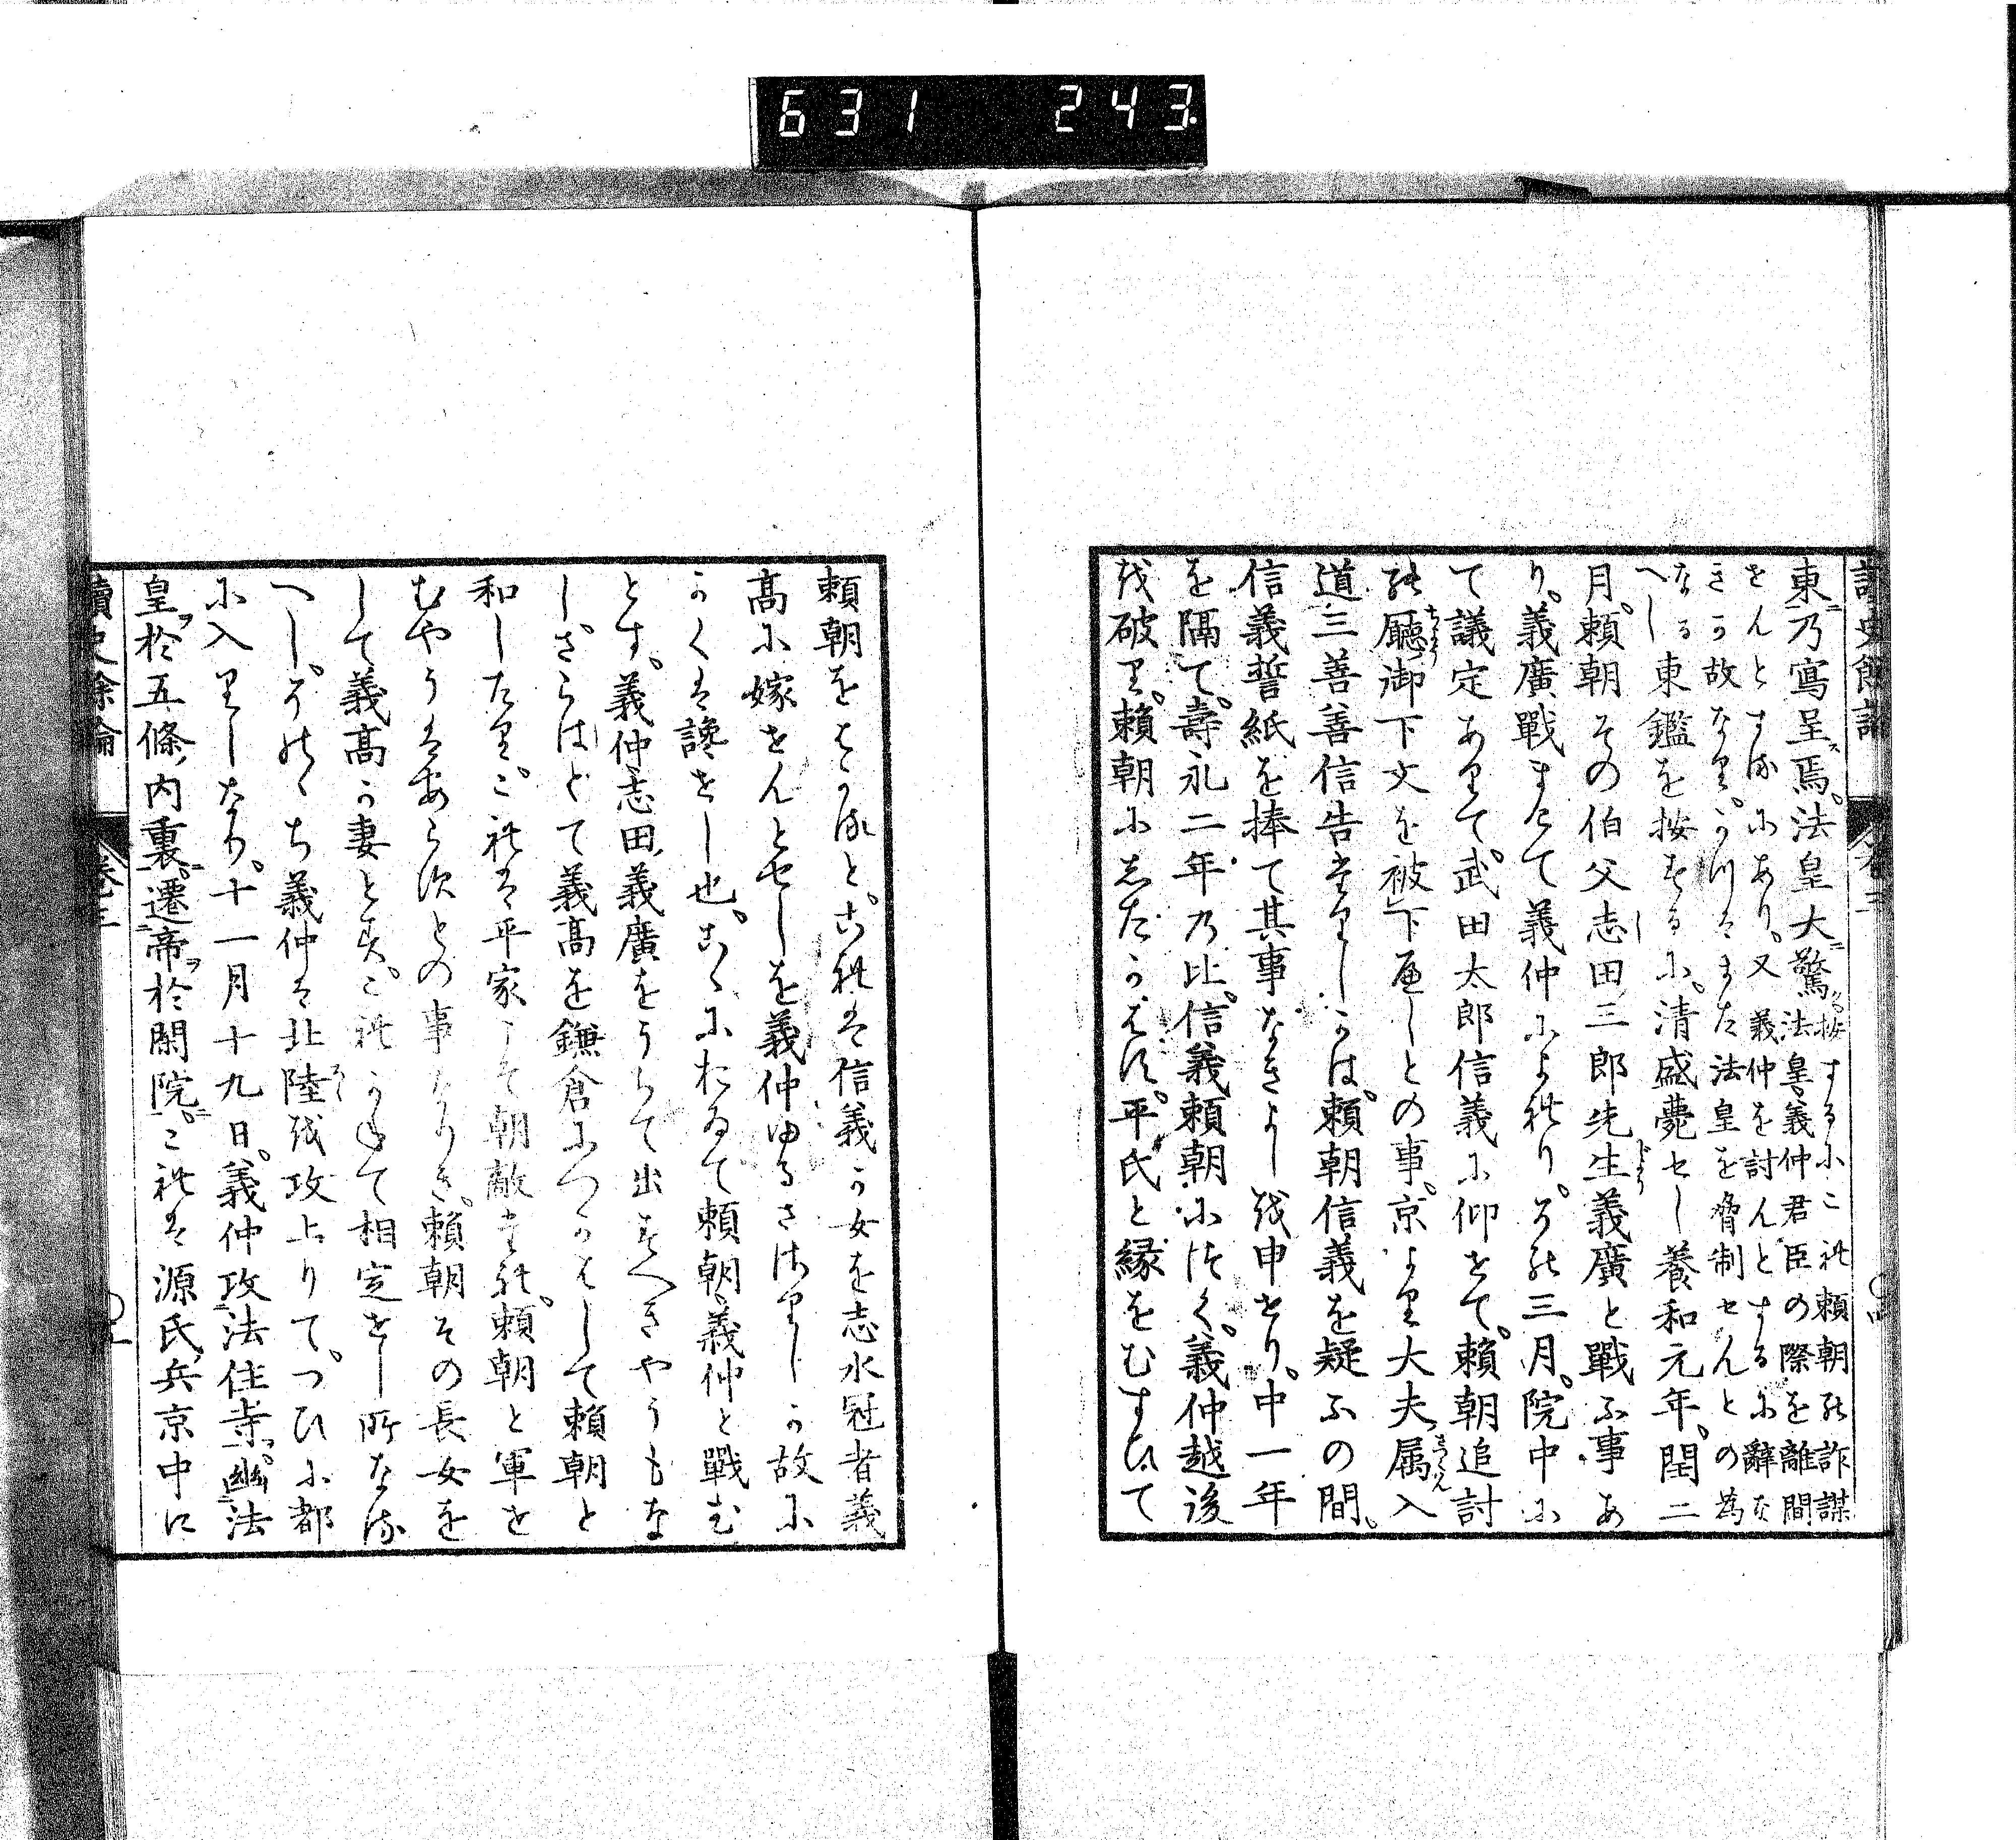 631 243
東ニ乃寫呈ス焉。法皇大ニ驚
按するにこれ頼朝の詐謀
法皇義仲君臣の際を離間
せんとするにあり。又義仲を討んとするに辭な
きか故なり。かつはまた法皇を脅制せんとの為
なる
へし東鑑を按するに。清盛薨せし養和元年。閏二
月。頼朝その伯父志田三郎先生義廣と戰ふ事あ
り。義廣戰まけて義仲によれり。その三月。院中に
て議定ありて。武田太郎信義に仰せて。頼朝追討
の廳御下文を被下へしとの事。京より大夫属入
道三善善信告たりしかは。頼朝信義を疑ふの間。
信義誓紙を捧て其事なきよしを申せり。中一年
を隔て。壽永二年の比。信義頼朝にそむく。義仲越後
を破り。頼朝にしたかはす。平氏と縁をむすひて
頼朝をはかると。これは信義か女を志水冠者義
高に嫁せんとせしを義仲ゆるさゝりしか故に
かくは讒せし也。こゝにおゐて頼朝義仲と戰む
とす。義仲志田義廣をうちて出すへきやうもな
しさらはとて義高を鎌倉につかはして頼朝と
和したり。これは平家こそ朝敵なれ。頼朝と軍を
むやうはあらすとの事なりき。頼朝その長女を
して義高か妻とす。これかねて相定せし所なる
へし。そのゝち義仲は北陸を攻上りて。つひに都
に入りしなり。十一月十九日。義仲攻法住寺。幽法
皇於五條内裏。遷帝於閑院。これは源氏兵京中に
讀史餘論 卷三